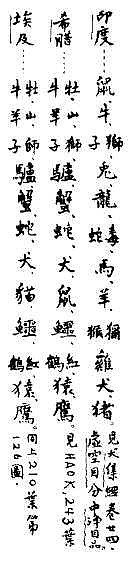 印度……鼠、牛、獅子、兔、龍、毒蛇、馬、羊、獼猴、雞、犬、豬。見大集經卷廿四、虛空目分中淨目品。
希腊……牡牛、山羊、獅子、驢、蟹、蛇、犬、鼠、鱷、紅鶴、猿、鷹。見HAOK,243葉
埃及……牡牛、山羊、師子、驢、蟹、蛇、犬、貓、鱷、紅鶴、猿、鷹。同上210葉第126圖。